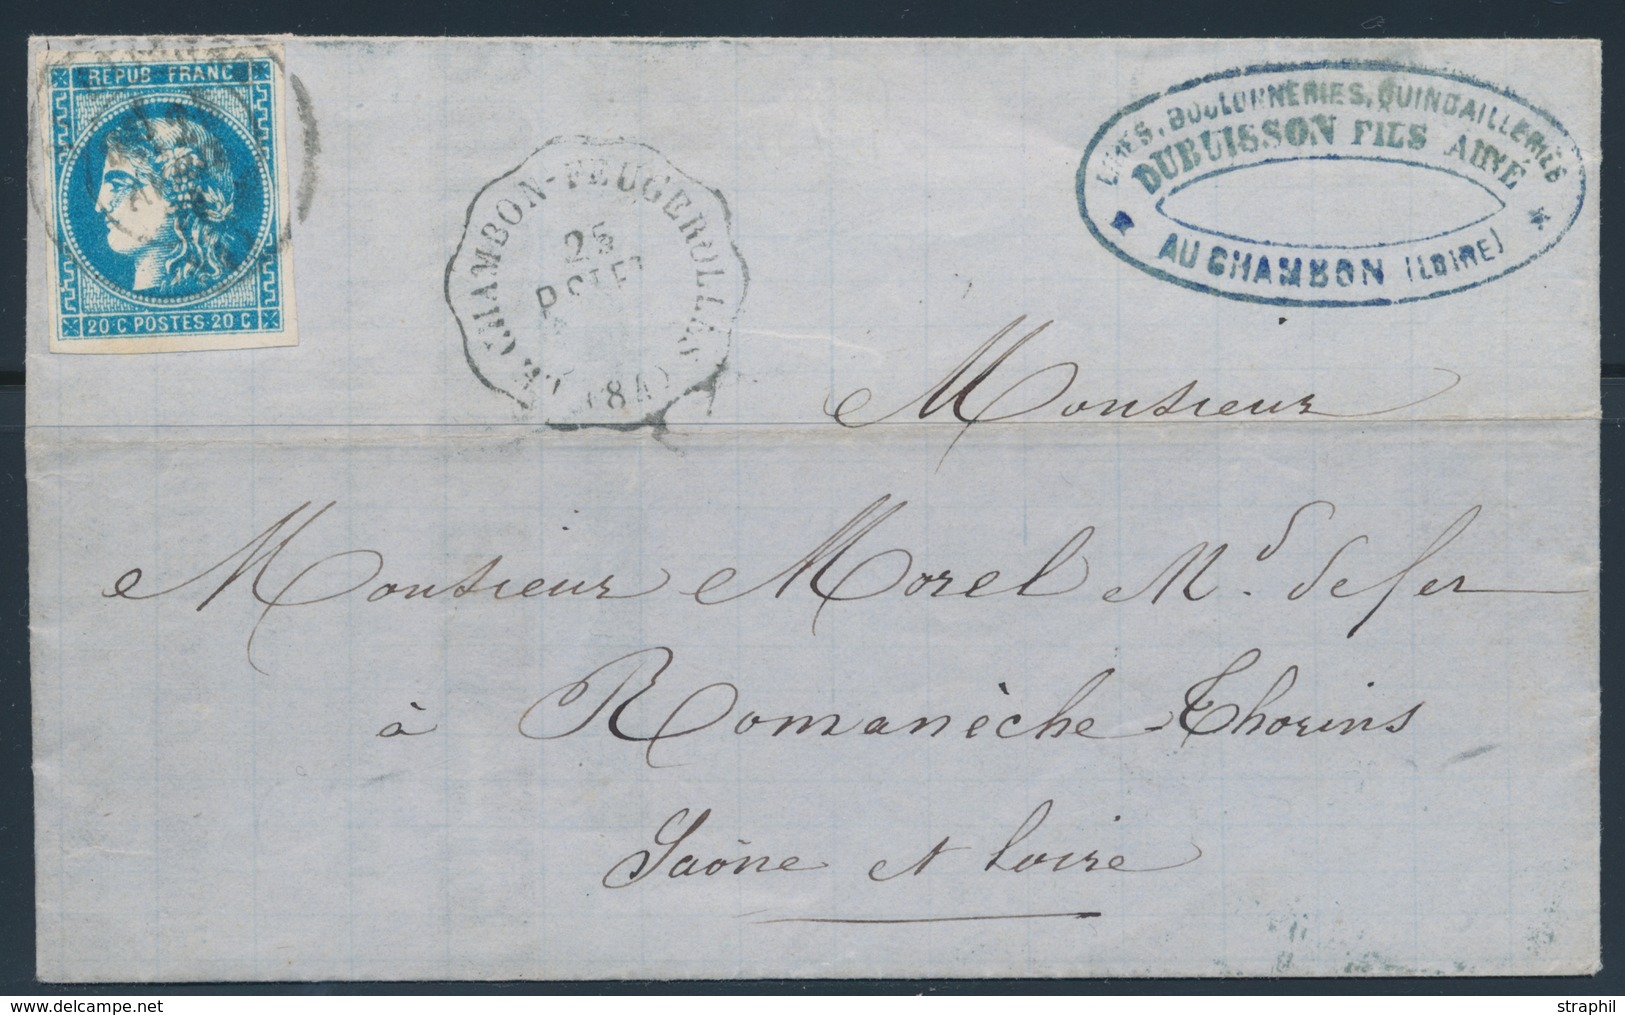 REPUB FRANC
20 C POSTES 20 C
CHAMBON-FEUGEROLLES
25
(84)
LIMES, BOULONNERIES, QUINCAILLERIES
DUBUISSON FILS AINÉ
AU CHAMBON (LOIRE)
Monsieur
Monsieur Morel Md. de fer
à Romanèche-Thorins
Saône et Loire
delcampe.net
straphil